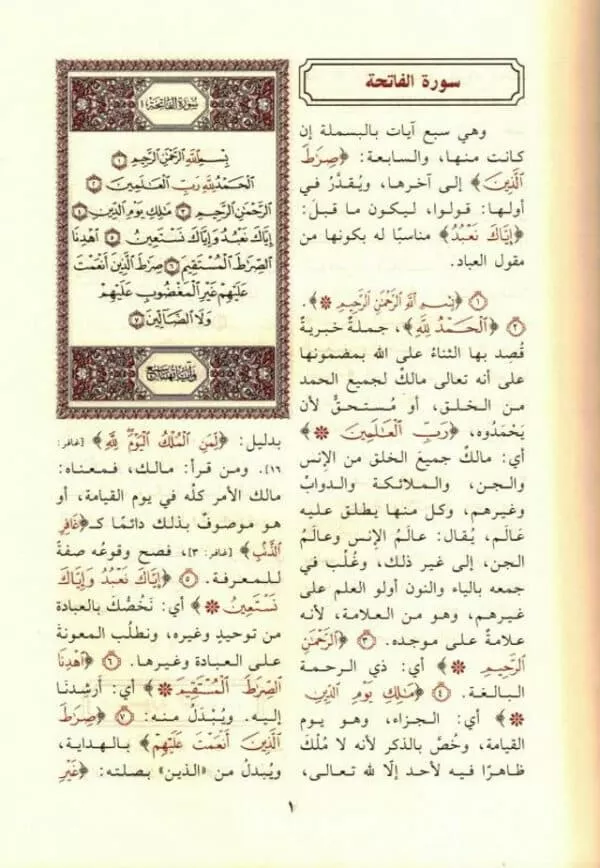 سورة الفاتحة
وهي سبع آيات بالبسملة إن
كانت منها، والسابعة: ﴿صِرَٰطَ
ٱلَّذِينَ﴾ إلى آخرها، ويُقدَّرُ في
أولها: قولوا، ليكون ما قبلَ:
﴿إِيَّاكَ نَعْبُدُ﴾ مناسبًا له بكونها من
مقول العباد.
١ ﴿بِسْمِ ٱللَّهِ ٱلرَّحْمَٰنِ ٱلرَّحِيمِ *﴾.
٢ ﴿ٱلْحَمْدُ لِلَّهِ﴾، جملةٌ خبريةٌ
قُصِد بها الثناءُ على الله بمضمونها
على أنه تعالى مالكٌ لجميع الحمد
من الخلق، أو مُستحقٌّ لأن
يَحْمَدُوه، ﴿رَبِّ ٱلْعَٰلَمِينَ *﴾
أي: مالكُ جميع الخلق من الإنس
والجن، والملائكة والدوابِّ
وغيرهم، وكل منها يطلق عليه
عَالَم، يُقال: عالمُ الإنس وعالمُ
الجن، إلى غير ذلك، وغُلِّب في
جمعه بالياء والنون أولو العلم على
غيرهم، وهو من العلامة، لأنه
علامةٌ على موجده. ٣ ﴿ٱلرَّحْمَٰنِ
ٱلرَّحِيمِ *﴾ أي: ذي الرحمة
البالغة. ٤ ﴿مَٰلِكِ يَوْمِ ٱلدِّينِ
*﴾ أي: الجزاء، وهو يوم
القيامة، وخُصَّ بالذكر لأنه لا مُلْكَ
ظاهرًا فيه لأحد إلّا لله تعالى،
سورة الفاتحة ١
بِسْمِ ٱللَّهِ ٱلرَّحْمَٰنِ ٱلرَّحِيمِ ١
ٱلْحَمْدُ لِلَّهِ رَبِّ ٱلْعَٰلَمِينَ ٢
ٱلرَّحْمَٰنِ ٱلرَّحِيمِ ٣ مَٰلِكِ يَوْمِ ٱلدِّينِ ٤
إِيَّاكَ نَعْبُدُ وَإِيَّاكَ نَسْتَعِينُ ٥ ٱهْدِنَا
ٱلصِّرَٰطَ ٱلْمُسْتَقِيمَ ٦ صِرَٰطَ ٱلَّذِينَ أَنْعَمْتَ
عَلَيْهِمْ غَيْرِ ٱلْمَغْضُوبِ عَلَيْهِمْ
وَلَا ٱلضَّآلِّينَ ٧
بدليل: ﴿لِّمَنِ ٱلْمُلْكُ ٱلْيَوْمَ لِلَّهِ﴾ [غافر:
١٦]. ومن قرأ: مالك، فمعناه:
مالك الأمر كلِّه في يوم القيامة، أو
هو موصوفٌ بذلك دائمًا كـ﴿غَافِرِ
ٱلذَّنۢبِ﴾ [غافر: ٣]، فصح وقوعُه صفةً
للمعرفة. ٥ ﴿إِيَّاكَ نَعْبُدُ وَإِيَّاكَ
نَسْتَعِينُ *﴾ أي: نَخُصُّك بالعبادة
من توحيدٍ وغيره، ونطلُب المعونةَ
على العبادة وغيرها. ٦ ﴿ٱهْدِنَا
ٱلصِّرَٰطَ ٱلْمُسْتَقِيمَ *﴾ أي: أرشِدْنا
إليه. ويُبْدَلُ منه: ٧ ﴿صِرَٰطَ
ٱلَّذِينَ أَنْعَمْتَ عَلَيْهِمْ﴾ بالهداية،
ويُبدلُ من «الذين» بصلته: ﴿غَيْرِ
١